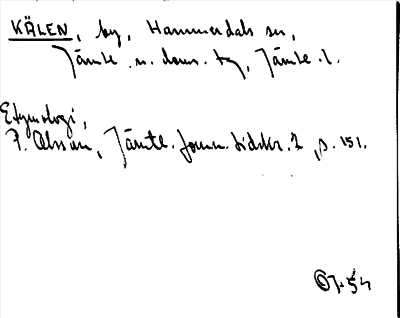 KÄLEN, by, Hammerdals sn,
Jämtl. n. doms. tg, Jämtl. l.
Etymologi,
P. Olsson, Jämtl. fornm. tidskr. 2, s. 151.